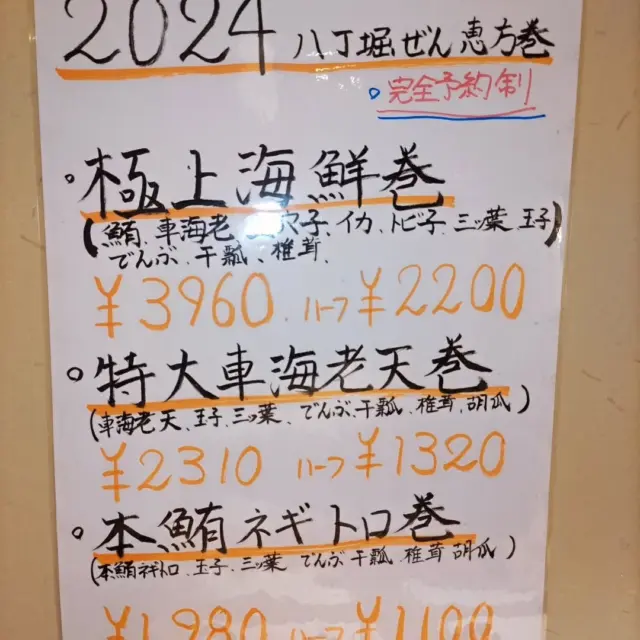 2024 八丁堀ぜん恵方巻
完全予約制
極上海鮮巻
(鮪、車海老、穴子、イカ、トビ子、三ッ葉、玉子)
でんぶ、干瓢、椎茸、
¥3960 ハーフ¥2200
特大車海老天巻
(車海老天、玉子、三ッ葉、でんぶ、干瓢、椎茸、胡瓜)
¥2310 ハーフ¥1320
本鮪ネギトロ巻
(本鮪ネギトロ、玉子、三ッ葉 でんぶ、干瓢、椎茸 胡瓜)
¥1980 ハーフ¥1100